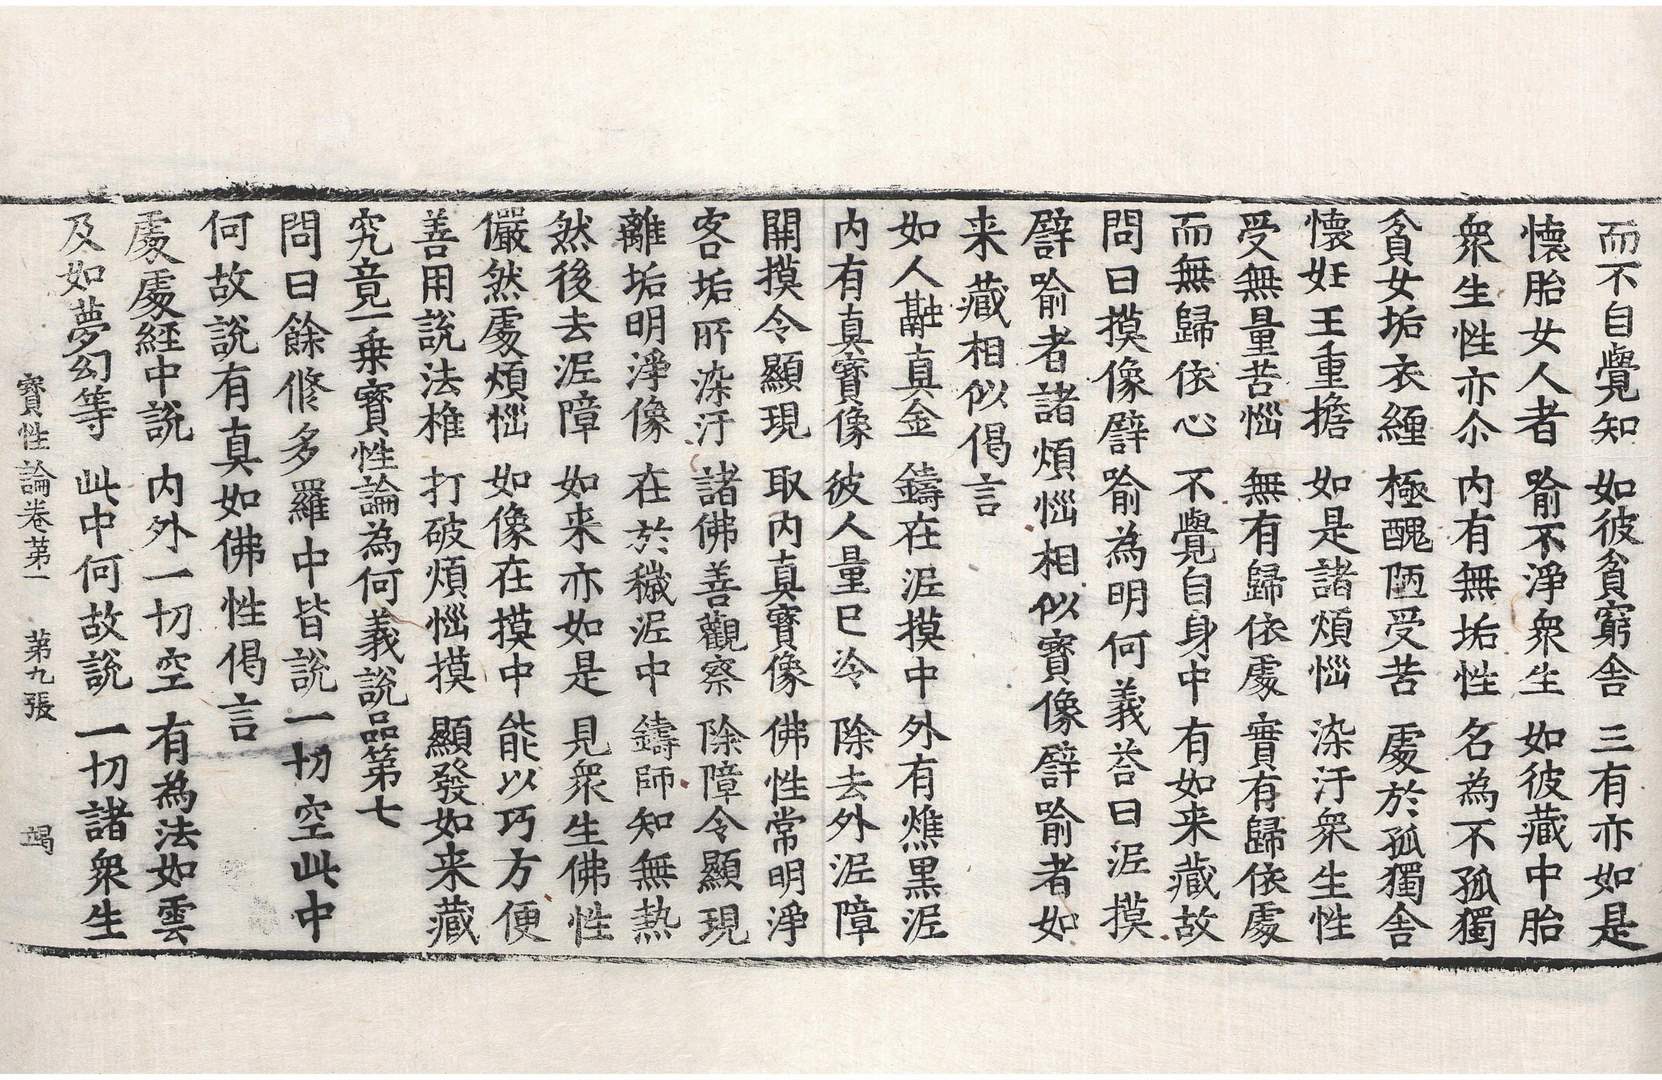 而不自覺知　如彼貧窮舍　三有亦如是
懷胎女人者　喻不淨衆生　如彼藏中胎
衆生性亦尒　内有無垢性　名為不孤獨
貧女垢衣纏　極醜陋受苦　處於孤獨舍
懷妊王重擔　如是諸煩惱　染汙衆生性
受無量苦惱　無有歸依處　實有歸依處
而無歸依心　不覺自身中　有如来藏故
問曰摸像譬喻為明何義荅曰泥摸
譬喻者諸煩惱相似寶像譬喻者如
来藏相似偈言
如人融真金　鑄在泥摸中　外有燋黒泥
内有真寶像　彼人量已冷　除去外泥障
開摸令顯現　取内真寶像　佛性常明淨
客垢所染汙　諸佛善觀察　除障令顯現
離垢明淨像　在於穢泥中　鑄師知無熱
然後去泥障　如来亦如是　見衆生佛性
儼然處煩惱　如像在摸中　能以巧方便
善用說法椎　打破煩惱摸　顯發如来藏
究竟一乗寶性論為何義說品第七
問曰餘修多羅中皆說一切空此中
何故說有真如佛性偈言
處處經中說　内外一切空　有為法如雲
及如夢幻等　此中何故說　一切諸衆生
寶性論卷第一　第九張　竭